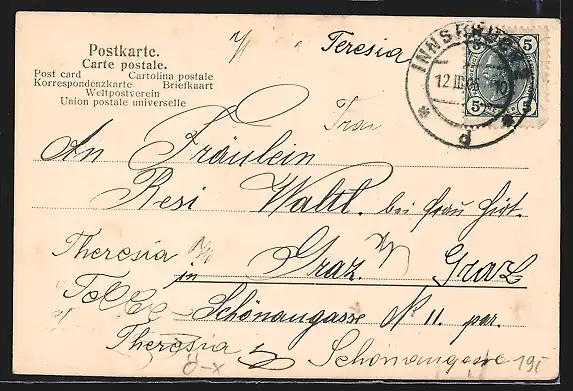 Teresia
Postkarte.
Carte postale.
Post card Cartolina postale
Korrespondenzkarte Briefkaart
Weltpostverein
Union postale universelle
INNSBRUCK
12 III 10
d
5 5
5 5
Frau
An Fräulein
Resi Waltl. bei Frau Hirt.
Theresia
in Graz. Graz
Schönaugasse N 11. par.
Theresia Schönaugasse
Ö-x